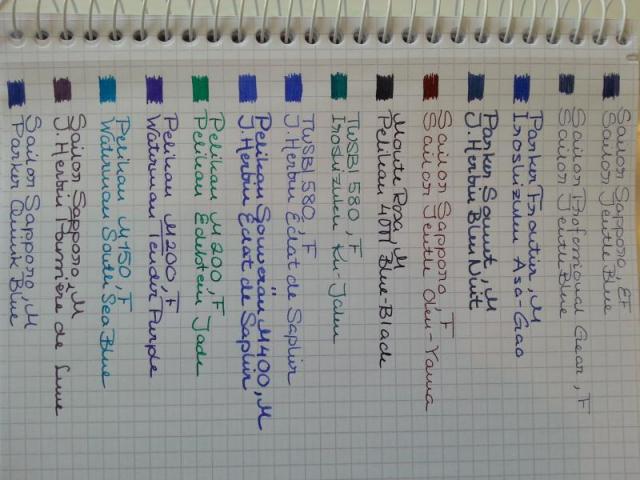 Sailor Sapporo, EF
Sailor Jentle Blue
Sailor Professional Gear, F
Sailor Jentle Blue
Parker Frontier, M
Iroshizuku Asa-Gao
Parker Sonnet, M
J. Herbin Bleu Nuit
Sailor Sapporo, F
Sailor Jentle Oku-Yama
Monte Rosa, M
Pelikan 4001 Blue-Black
TWSBI 580, F
Iroshizuku Ku-Jaku
TWSBI 580, F
J. Herbin Eclat de Saphir
Pelikan Souverän M400, M
J. Herbin Eclat de Saphir
Pelikan M200, F
Pelikan Edelstein Jade
Pelikan M200, F
Waterman Tender Purple
Pelikan M150, F
Waterman South Sea Blue
Sailor Sapporo, M
J. Herbin Poussière de Lune
Sailor Sapporo, M
Parker Quink Blue